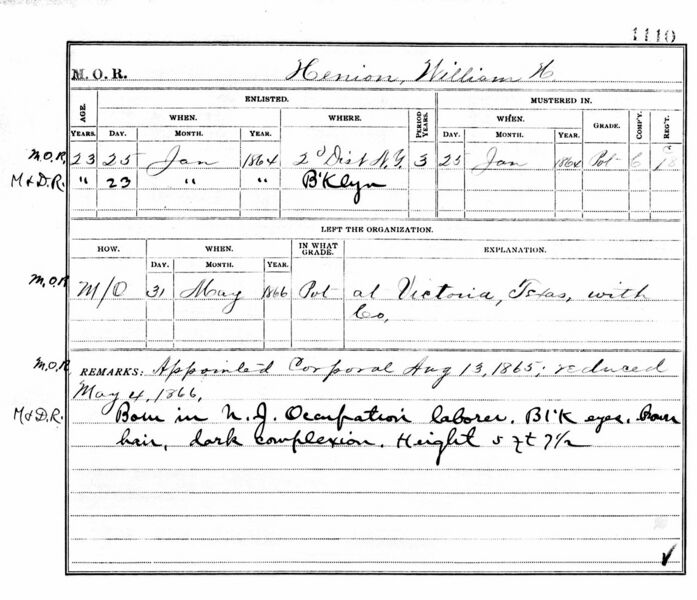 1110
M. O. R. Henion, William H
ENLISTED. MUSTERED IN.
AGE. WHEN. WHERE. PERIOD YEARS. WHEN. GRADE. COMP'Y. REG'T.
YEARS. DAY. MONTH. YEAR. DAY. MONTH. YEAR.
M.O.R. 23 25 Jan 1864 2d Dist N.Y. 3 25 Jan 1864 Pvt C 18
M & D.R. " 23 " " B'Klyn
LEFT THE ORGANIZATION.
HOW. WHEN. IN WHAT GRADE. EXPLANATION.
DAY. MONTH. YEAR.
M.O.R. M/O 31 May 1866 Pvt at Victoria, Texas, with
Co,
M.O.R. REMARKS: Appointed Corporal Aug 13, 1865; reduced
May 4, 1866,
M & D.R. Born in N.J. Occupation laborer. Bl'k eyes, Brown
hair, dark complexion. Height 5 ft 7 1/2